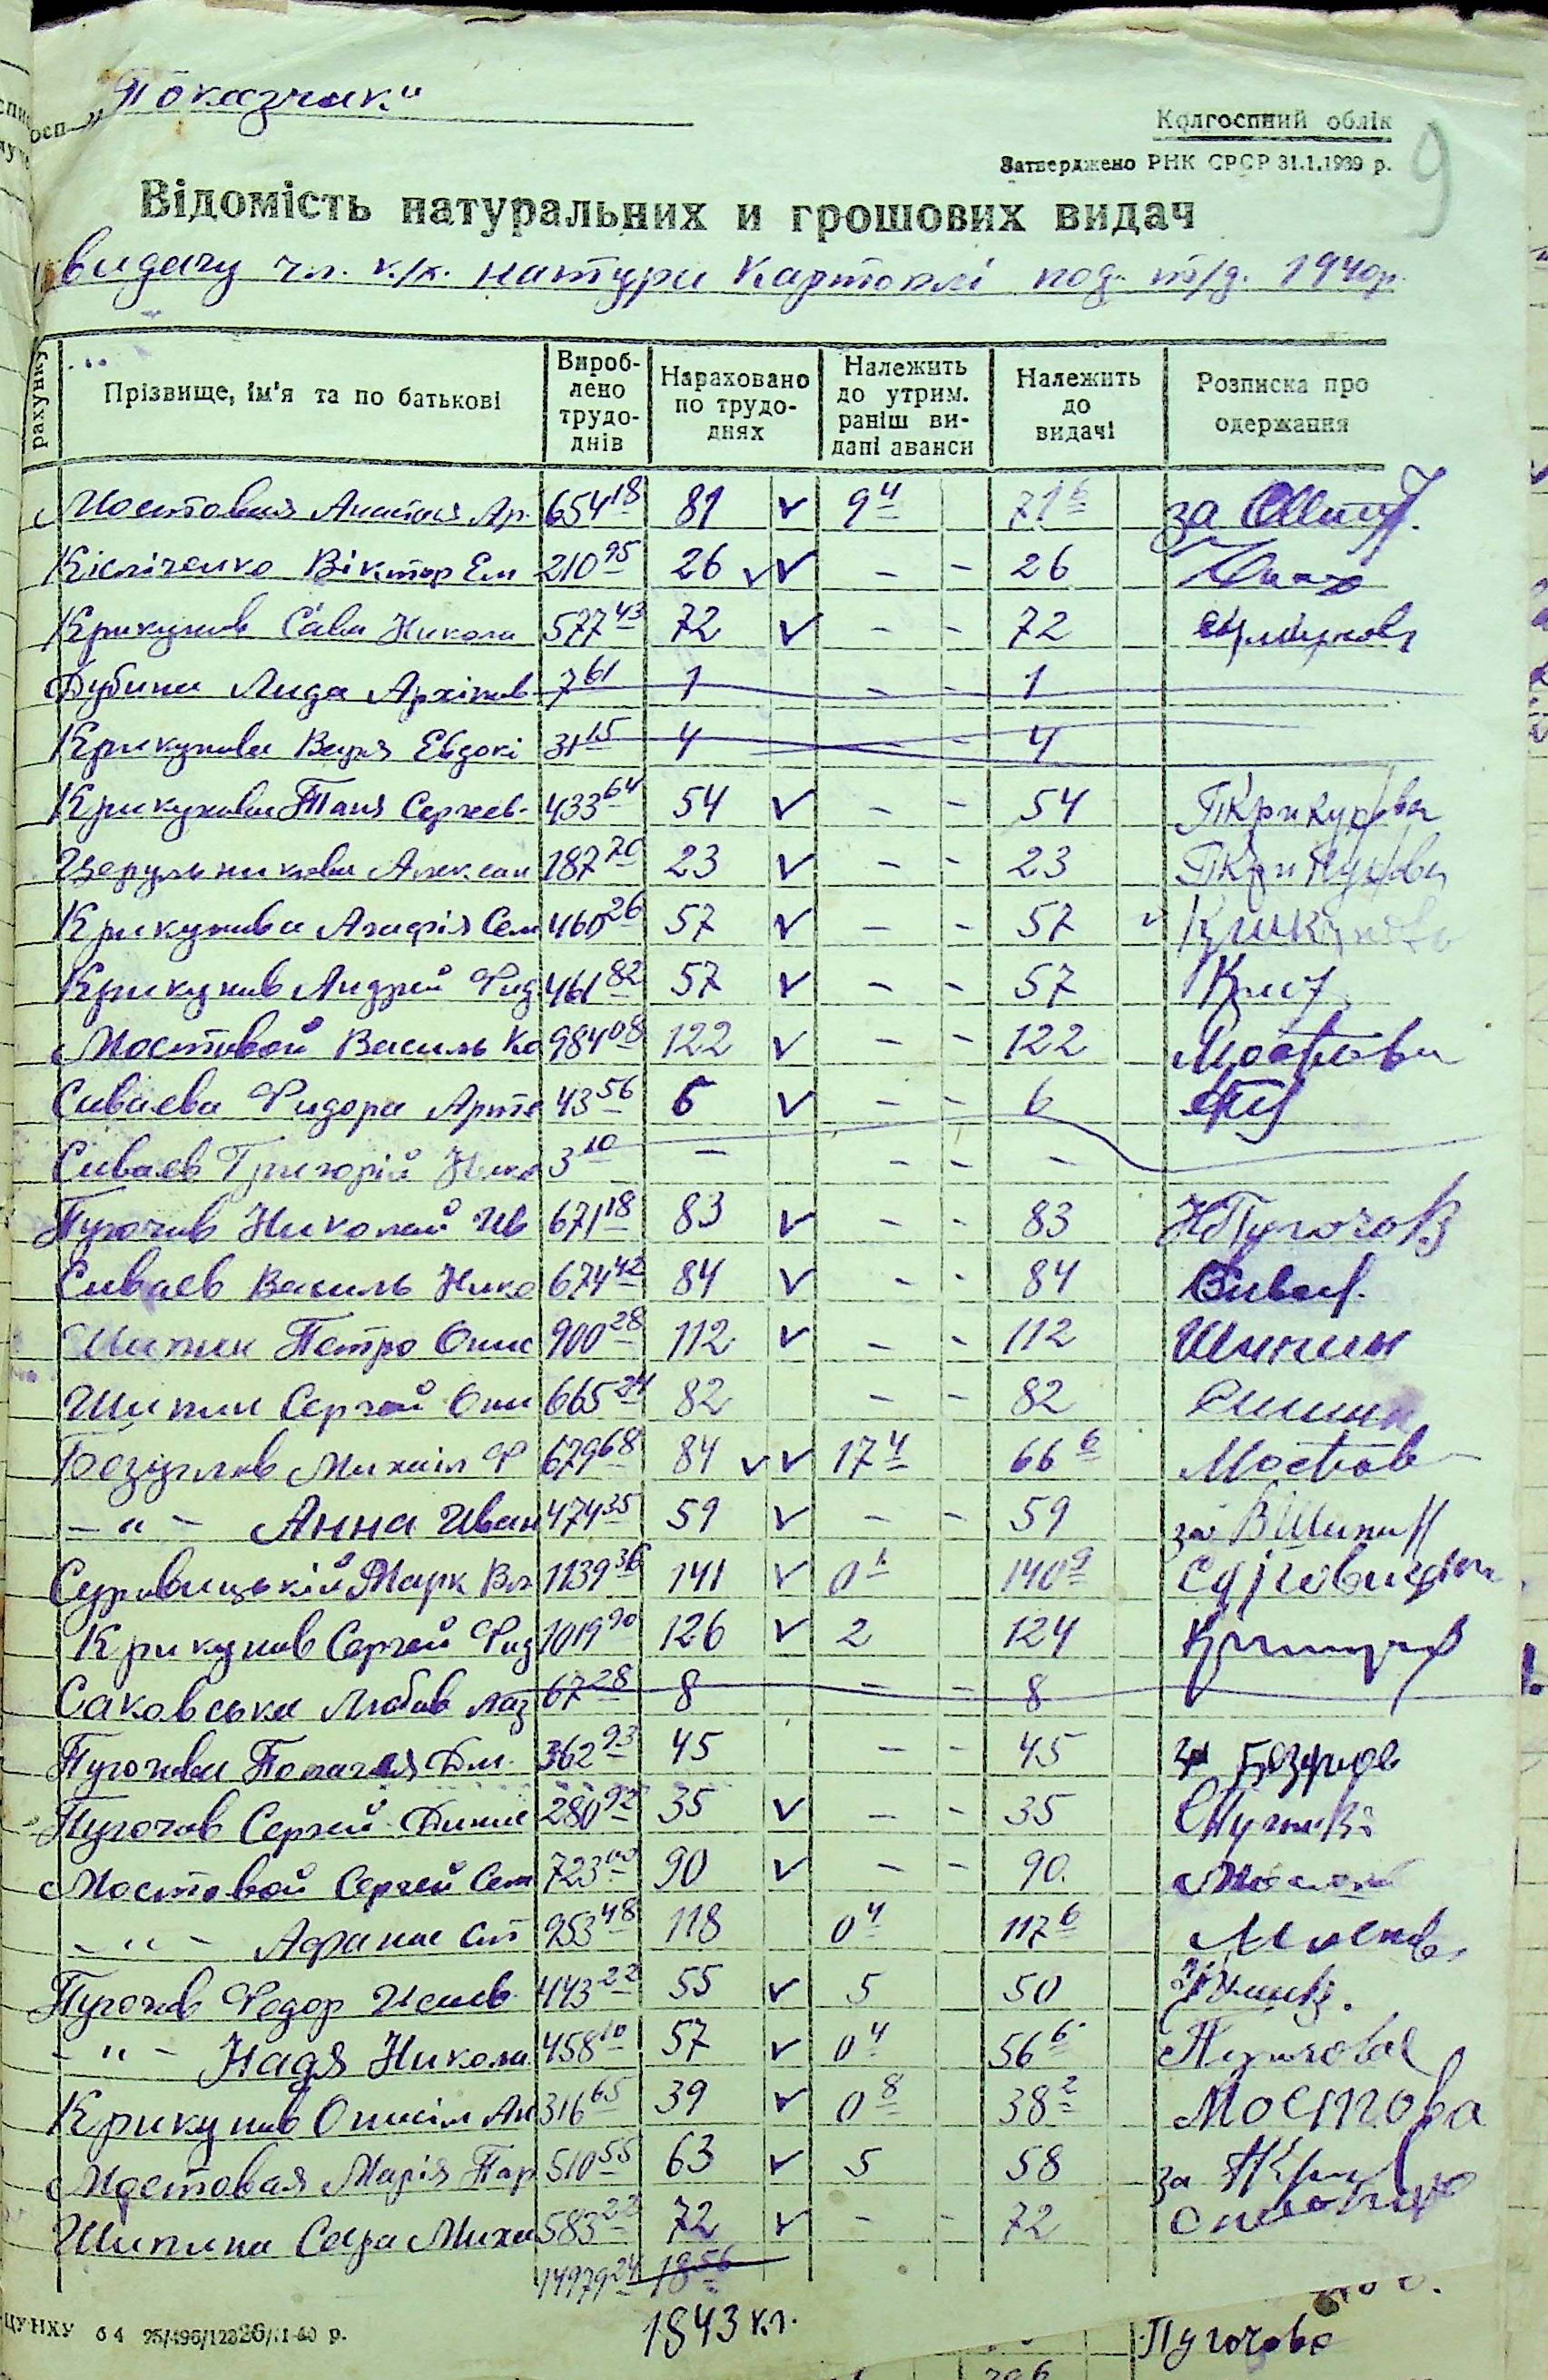 осп „Показчик"
Колгоспний облік
Затверджено РНК СРСР 31.1.1939 р.
9
Відомість натуральних и грошових видач
видачу чл. к/г. натури Картоплі под. т/д. 1940р.
рахунку
Прізвище, ім'я та по батькові
Вироблено трудоднів
Нараховано по трудоднях
Належить до утрим. раніш видані аванси
Належить до видачі
Розписка про одержання
Мостовая Ар. 654 18 81 v 9 4 71 6 за
Кісліченко Віктор Ем 210 95 26 v v - - 26
Крикунов Сава Никола 577 43 72 v - - 72
Дубина Лида Архіпов 7 61 1 - - 1
Крикунова Варя Евдокі 31 15 4 - - 4
Крикунова Таня Сергеев- 433 64 54 v - - 54 ТКрикунова
Церульникова Алексан 187 70 23 v - - 23 ТКрикунова
Крикунова Агафія Сем 460 26 57 v - - 57 v Крикунова
Крикунов Андрей Фид 461 82 57 v - - 57
Мостовой Василь Ко 984 08 122 v - - 122 Мостова
Сиваева Фидора Арте 43 56 6 v - - 6
Сиваев Григорій Нико 3 10 - - - -
Пугочов Николай Ив 671 18 83 v - - 83 НПугочов
Сиваев Василь Нико 674 42 84 v - - 84 Сиваев
Шипин Петро Онис 900 28 112 v - - 112 Шипин
Шипин СергейОни 665 24 82 - - 82
Безуглов Михаіл Ф 679 68 84 v v 17 4 66 6 Мостов
- " - Анна Иван 474 35 59 v - - 59 за ВШипин
Суровицький Марк Вл 1139 36 141 v 0 1 140 9
Крикунов Сергей Фид 1019 90 126 v 2 124
Саковська Любов Лаз 67 28 8 - - 8
Пугочова Пологея Дм. 362 93 45 - - 45 Безуглов
Пугочов Сергей 280 92 35 v - - 35
Мостовой Сергей Сем 723 00 90 v - - 90.
- " - Афанас 953 48 118 0 4 117 6
Пугочов Федор Исаев 443 22 55 v 5 50
- " - Надя Никола. 458 10 57 v 0 4 56 6 Пугочова
Крикунов Онисім Ан 316 65 39 v 0 8 38 2 Мостова
Мостовая Марія Пар 510 55 63 v 5 58 за
Шипина Сера Миха 583 22 72 v - - 72
14979 24 1856
1843 кг.
ЦУНХУ
Пугочова